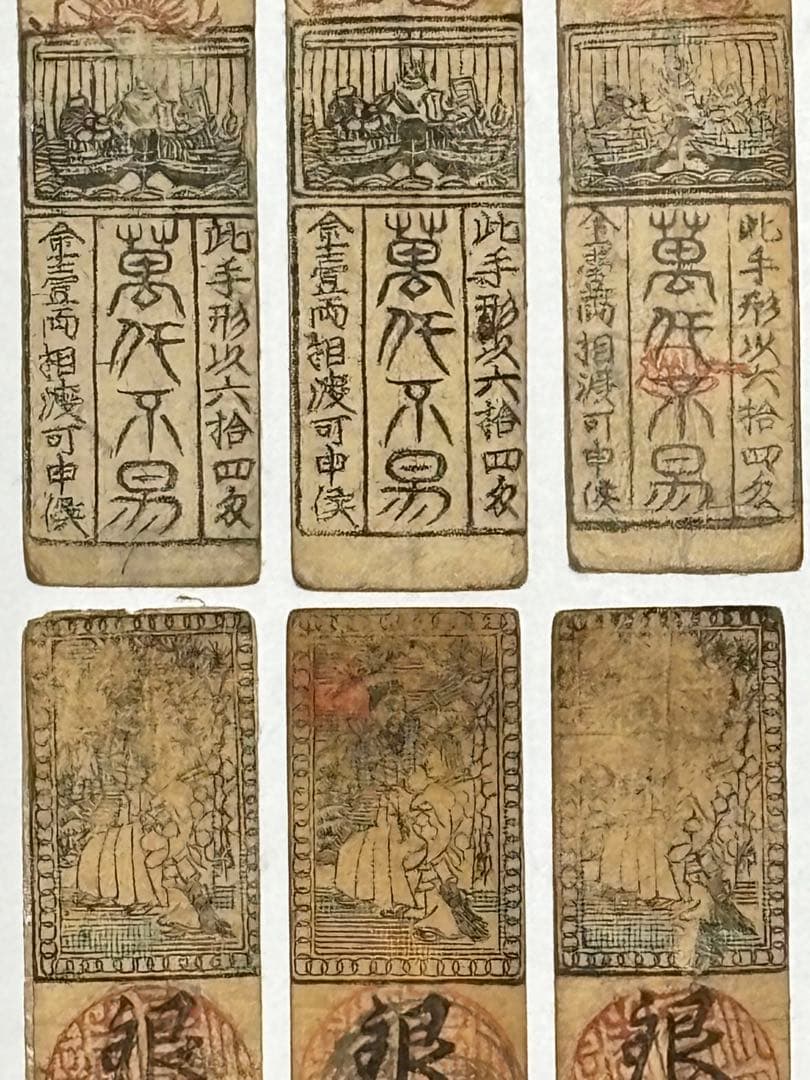 此手形以六拾四匁
萬代不易
金壹両相渡可申候
此手形以六拾四匁
萬代不易
金壹両相渡可申候
此手形以六拾四匁
萬代不易
金壹両相渡可申候
銀
銀
銀